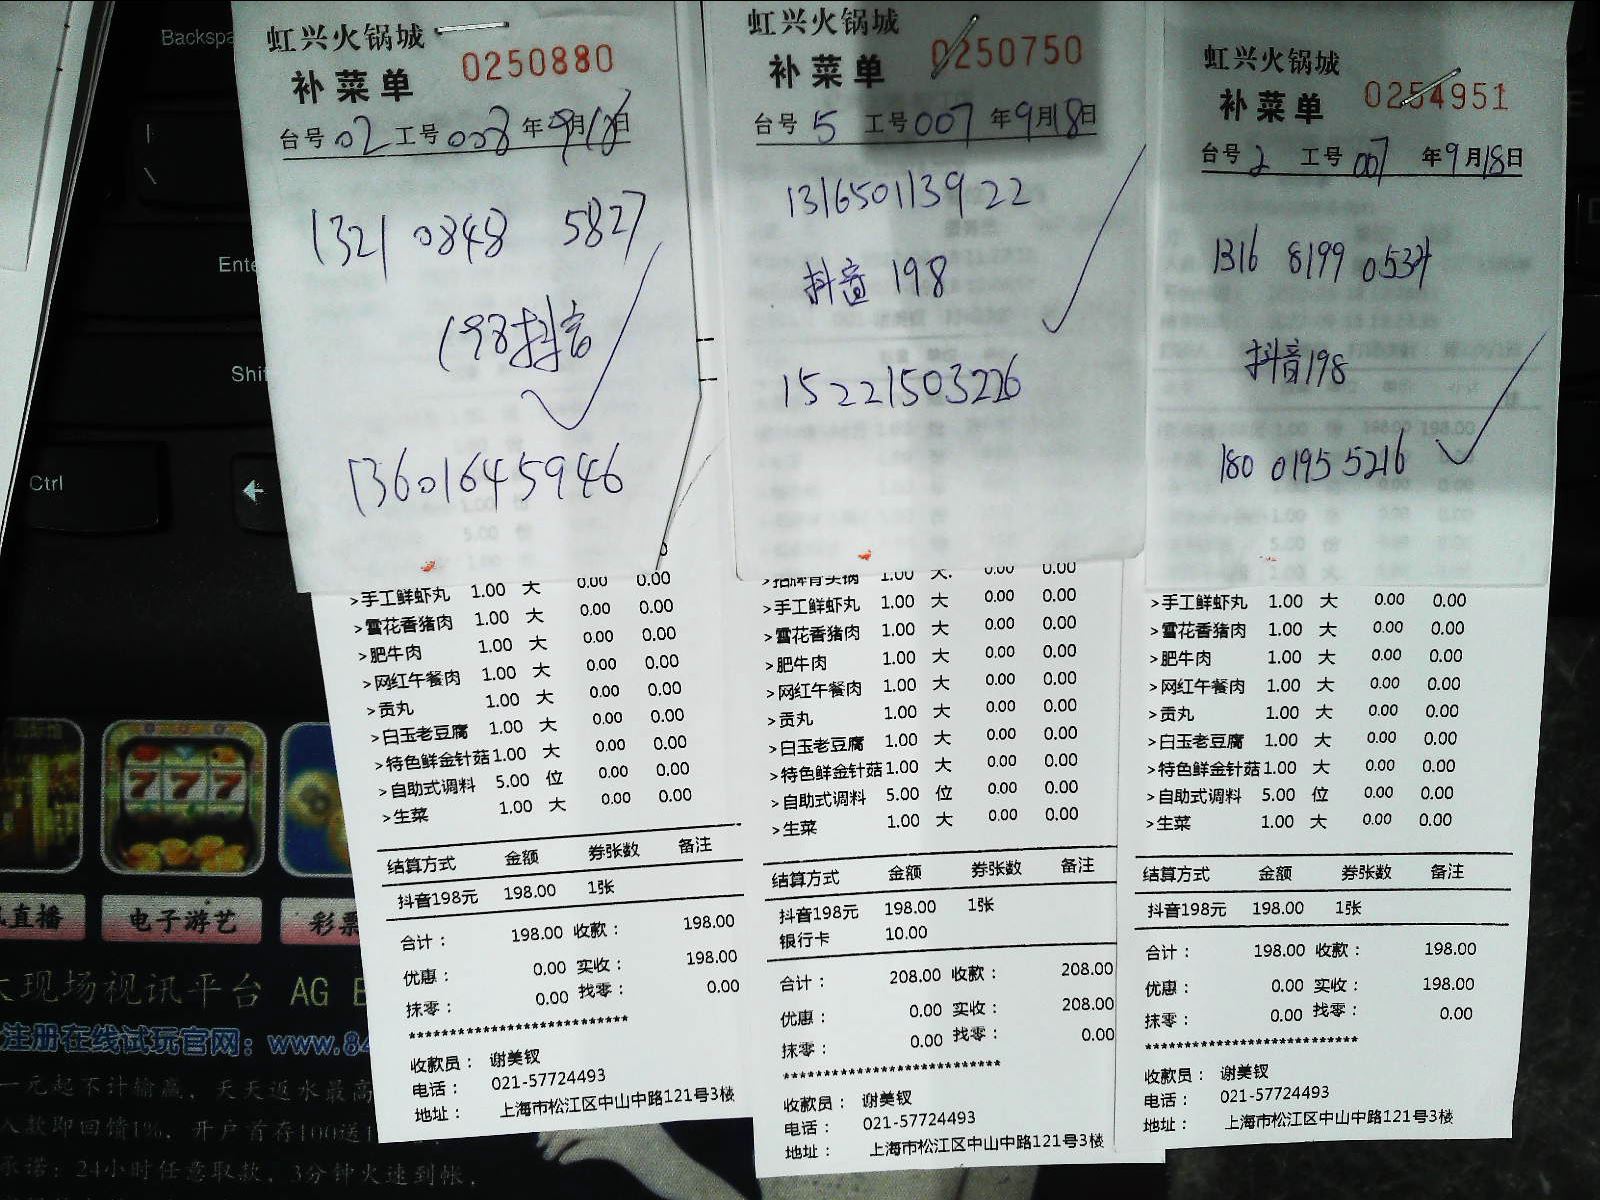 虹兴火锅城
补菜单
0250880
台号 02 工号 008 年 9月18日
1321 0848 5827
198抖音
13601645946
>手工鲜虾丸 1.00 大 0.00 0.00
>雪花香猪肉 1.00 大 0.00 0.00
>肥牛肉 1.00 大 0.00 0.00
>网红午餐肉 1.00 大 0.00 0.00
>贡丸 1.00 大 0.00 0.00
>白玉老豆腐 1.00 大 0.00 0.00
>特色鲜金针菇 1.00 大 0.00 0.00
>自助式调料 5.00 位 0.00 0.00
>生菜 1.00 大 0.00 0.00
结算方式 金额 券张数 备注
抖音198元 198.00 1张
合计： 198.00 收款： 198.00
优惠： 0.00 实收： 198.00
抹零： 0.00 找零： 0.00
****************************
收款员： 谢美钗
电话： 021-57724493
地址： 上海市松江区中山中路121号3楼
虹兴火锅城
补菜单
0250750
台号 5 工号 007 年 9月18日
131650113922
抖音 198
15221503226
>招牌骨头锅 1.00 大. 0.00 0.00
>手工鲜虾丸 1.00 大 0.00 0.00
>雪花香猪肉 1.00 大 0.00 0.00
>肥牛肉 1.00 大 0.00 0.00
>网红午餐肉 1.00 大 0.00 0.00
>贡丸 1.00 大 0.00 0.00
>白玉老豆腐 1.00 大 0.00 0.00
>特色鲜金针菇 1.00 大 0.00 0.00
>自助式调料 5.00 位 0.00 0.00
>生菜 1.00 大 0.00 0.00
结算方式 金额 券张数 备注
抖音198元 198.00 1张
银行卡 10.00
合计： 208.00 收款： 208.00
优惠： 0.00 实收： 208.00
抹零： 0.00 找零： 0.00
****************************
收款员： 谢美钗
电话： 021-57724493
地址： 上海市松江区中山中路121号3楼
虹兴火锅城
补菜单
0254951
台号 2 工号 007 年 9月18日
1316 8199 0534
抖音198
180 0195 5216
>手工鲜虾丸 1.00 大 0.00 0.00
>雪花香猪肉 1.00 大 0.00 0.00
>肥牛肉 1.00 大 0.00 0.00
>网红午餐肉 1.00 大 0.00 0.00
>贡丸 1.00 大 0.00 0.00
>白玉老豆腐 1.00 大 0.00 0.00
>特色鲜金针菇 1.00 大 0.00 0.00
>自助式调料 5.00 位 0.00 0.00
>生菜 1.00 大 0.00 0.00
结算方式 金额 券张数 备注
抖音198元 198.00 1张
合计： 198.00 收款： 198.00
优惠： 0.00 实收： 198.00
抹零： 0.00 找零： 0.00
****************************
收款员： 谢美钗
电话： 021-57724493
地址： 上海市松江区中山中路121号3楼
Backspa
Ente
Shif
Ctrl
777
直播 电子游艺 彩票
现场视讯平台 AG
注册在线试玩官网：www.84
一元起不计输赢，天天返水最高
款即回馈1%，开户首存100送1
承诺：24小时任意取款，3分钟火速到帐，